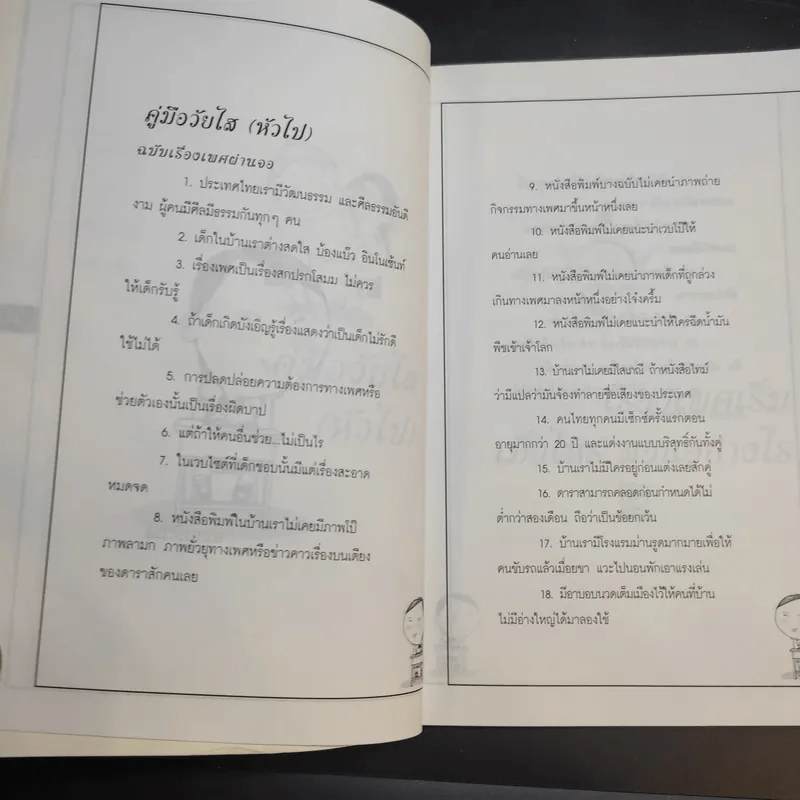 คู่มือวัยใส (หัวไป)
ฉบับเรื่องเพศผ่านจอ
1. ประเทศไทยเรามีวัฒนธรรม และศีลธรรมอันดี
งาม ผู้คนมีศีลมีธรรมกันทุกๆ คน
2. เด็กในบ้านเราต่างสดใส บ้องแบ๊ว อินโนเซ้นท์
3. เรื่องเพศเป็นเรื่องสกปรกโสมม ไม่ควร
ให้เด็กรับรู้
4. ถ้าเด็กเกิดบังเอิญรู้เรื่องแสดงว่าเป็นเด็กไม่รักดี
ใช้ไม่ได้
5. การปลดปล่อยความต้องการทางเพศหรือ
ช่วยตัวเองนั้นเป็นเรื่องผิดบาป
6. แต่ถ้าให้คนอื่นช่วย...ไม่เป็นไร
7. ในเวบไซต์ที่เด็กชอบนั้นมีแต่เรื่องสะอาด
หมดจด
8. หนังสือพิมพ์ในบ้านเราไม่เคยมีภาพโป๊
ภาพลามก ภาพยั่วยุทางเพศหรือข่าวคาวเรื่องบนเตียง
ของดาราสักคนเลย
9. หนังสือพิมพ์บางฉบับไม่เคยนำภาพถ่าย
กิจกรรมทางเพศมาขึ้นหน้าหนึ่งเลย
10. หนังสือพิมพ์ไม่เคยแนะนำเวบโป๊ให้
คนอ่านเลย
11. หนังสือพิมพ์ไม่เคยนำภาพเด็กที่ถูกล่วง
เกินทางเพศมาลงหน้าหนึ่งอย่างโจ๋งครึ้ม
12. หนังสือพิมพ์ไม่เคยแนะนำให้ใครฉีดน้ำมัน
พืชเข้าเจ้าโลก
13. บ้านเราไม่เคยมีโสเภณี ถ้าหนังสือไทม์
ว่ามีแปลว่ามันจ้องทำลายชื่อเสียงของประเทศ
14. คนไทยทุกคนมีเซ็กซ์ครั้งแรกตอน
อายุมากกว่า 20 ปี และแต่งงานแบบบริสุทธิ์กันทั้งคู่
15. บ้านเราไม่มีใครอยู่ก่อนแต่งเลยสักคู่
16. ดาราสามารถคลอดก่อนกำหนดได้ไม่
ต่ำกว่าสองเดือน ถือว่าเป็นข้อยกเว้น
17. บ้านเรามีโรงแรมม่านรูดมากมายเพื่อให้
คนขับรถแล้วเมื่อยขา แวะไปนอนพักเอาแรงเล่น
18. มีอาบอบนวดเต็มเมืองไว้ให้คนที่บ้าน
ไม่มีอ่างใหญ่ได้มาลองใช้